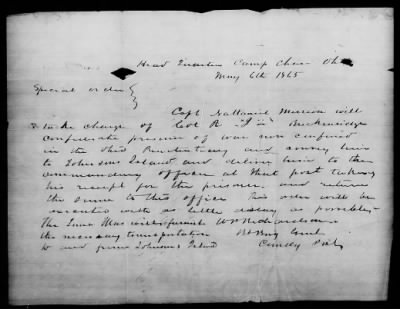 Head Quarters Camp Chase Ohio
May 6th 1865
Special Order
Capt Nathaniel will
take charge of Col R Breckinridge
confederate prisoner of war now confined
in the Ohio Penitentiary and convey him
to Johnsons Island and deliver him to the
commanding officer at that post taking
his receipt for the prisoner and return
the same to this office this order will be
executed with as little delay as possible
The will furnish W P Richardson
the necessary transportation
to and from Johnsons Island